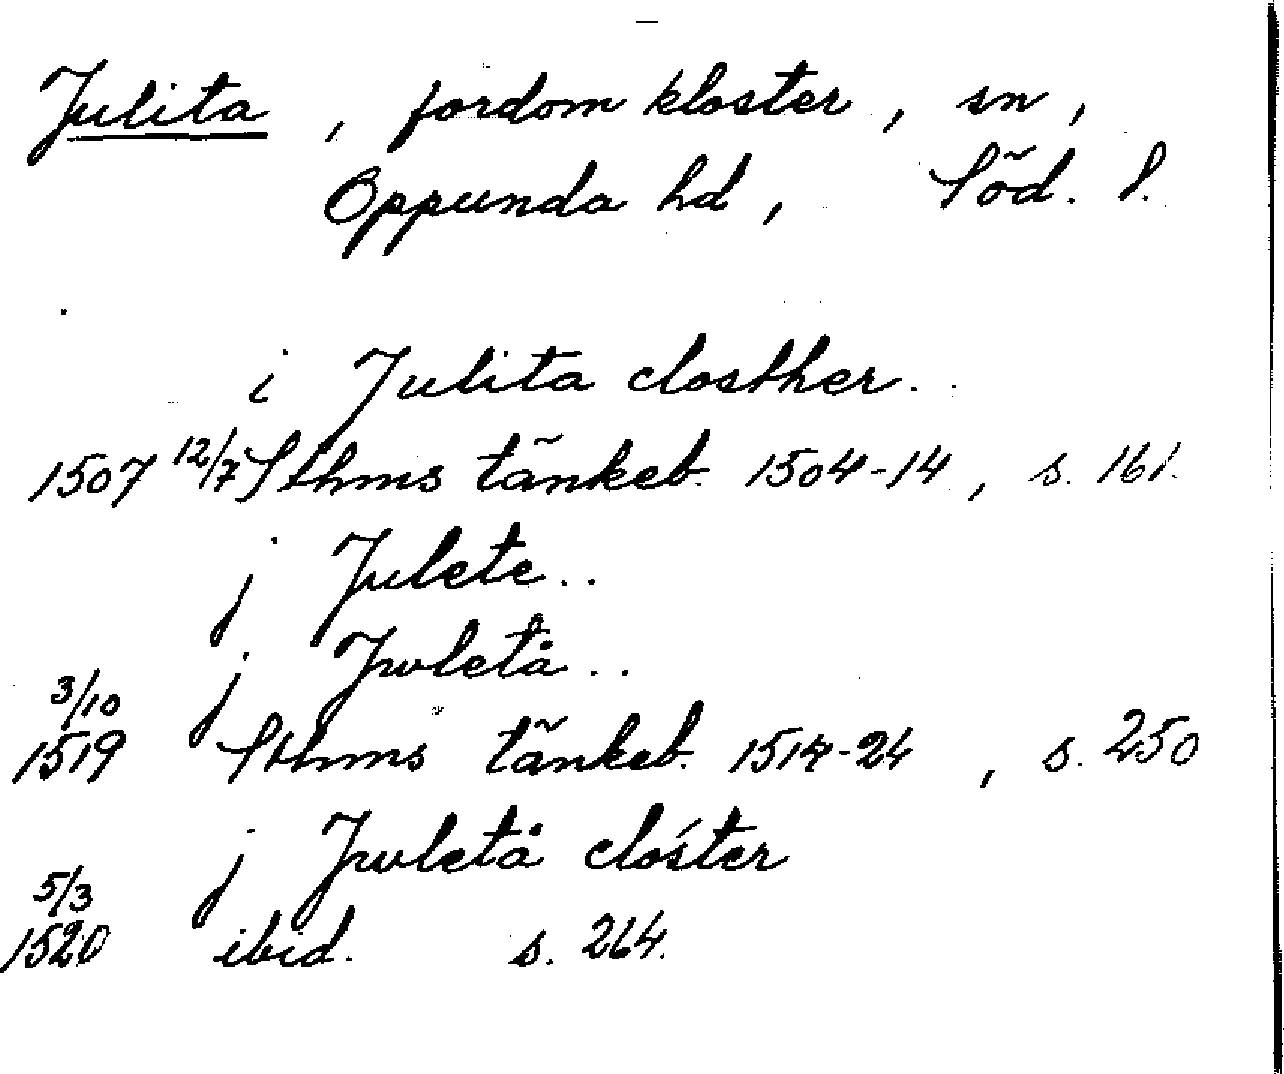 Julita, fordom kloster, sn,
Oppunda hd, Söd. l.
i Julita closther..
1507 12/7 Sthms tänkeb. 1504-14, s. 161.
j Julete..
j Jwletå..
3/10
1519 Sthms tänkeb. 1514-24, s. 250
j Jwletå closter
5/3
1520 ibid. s. 264.